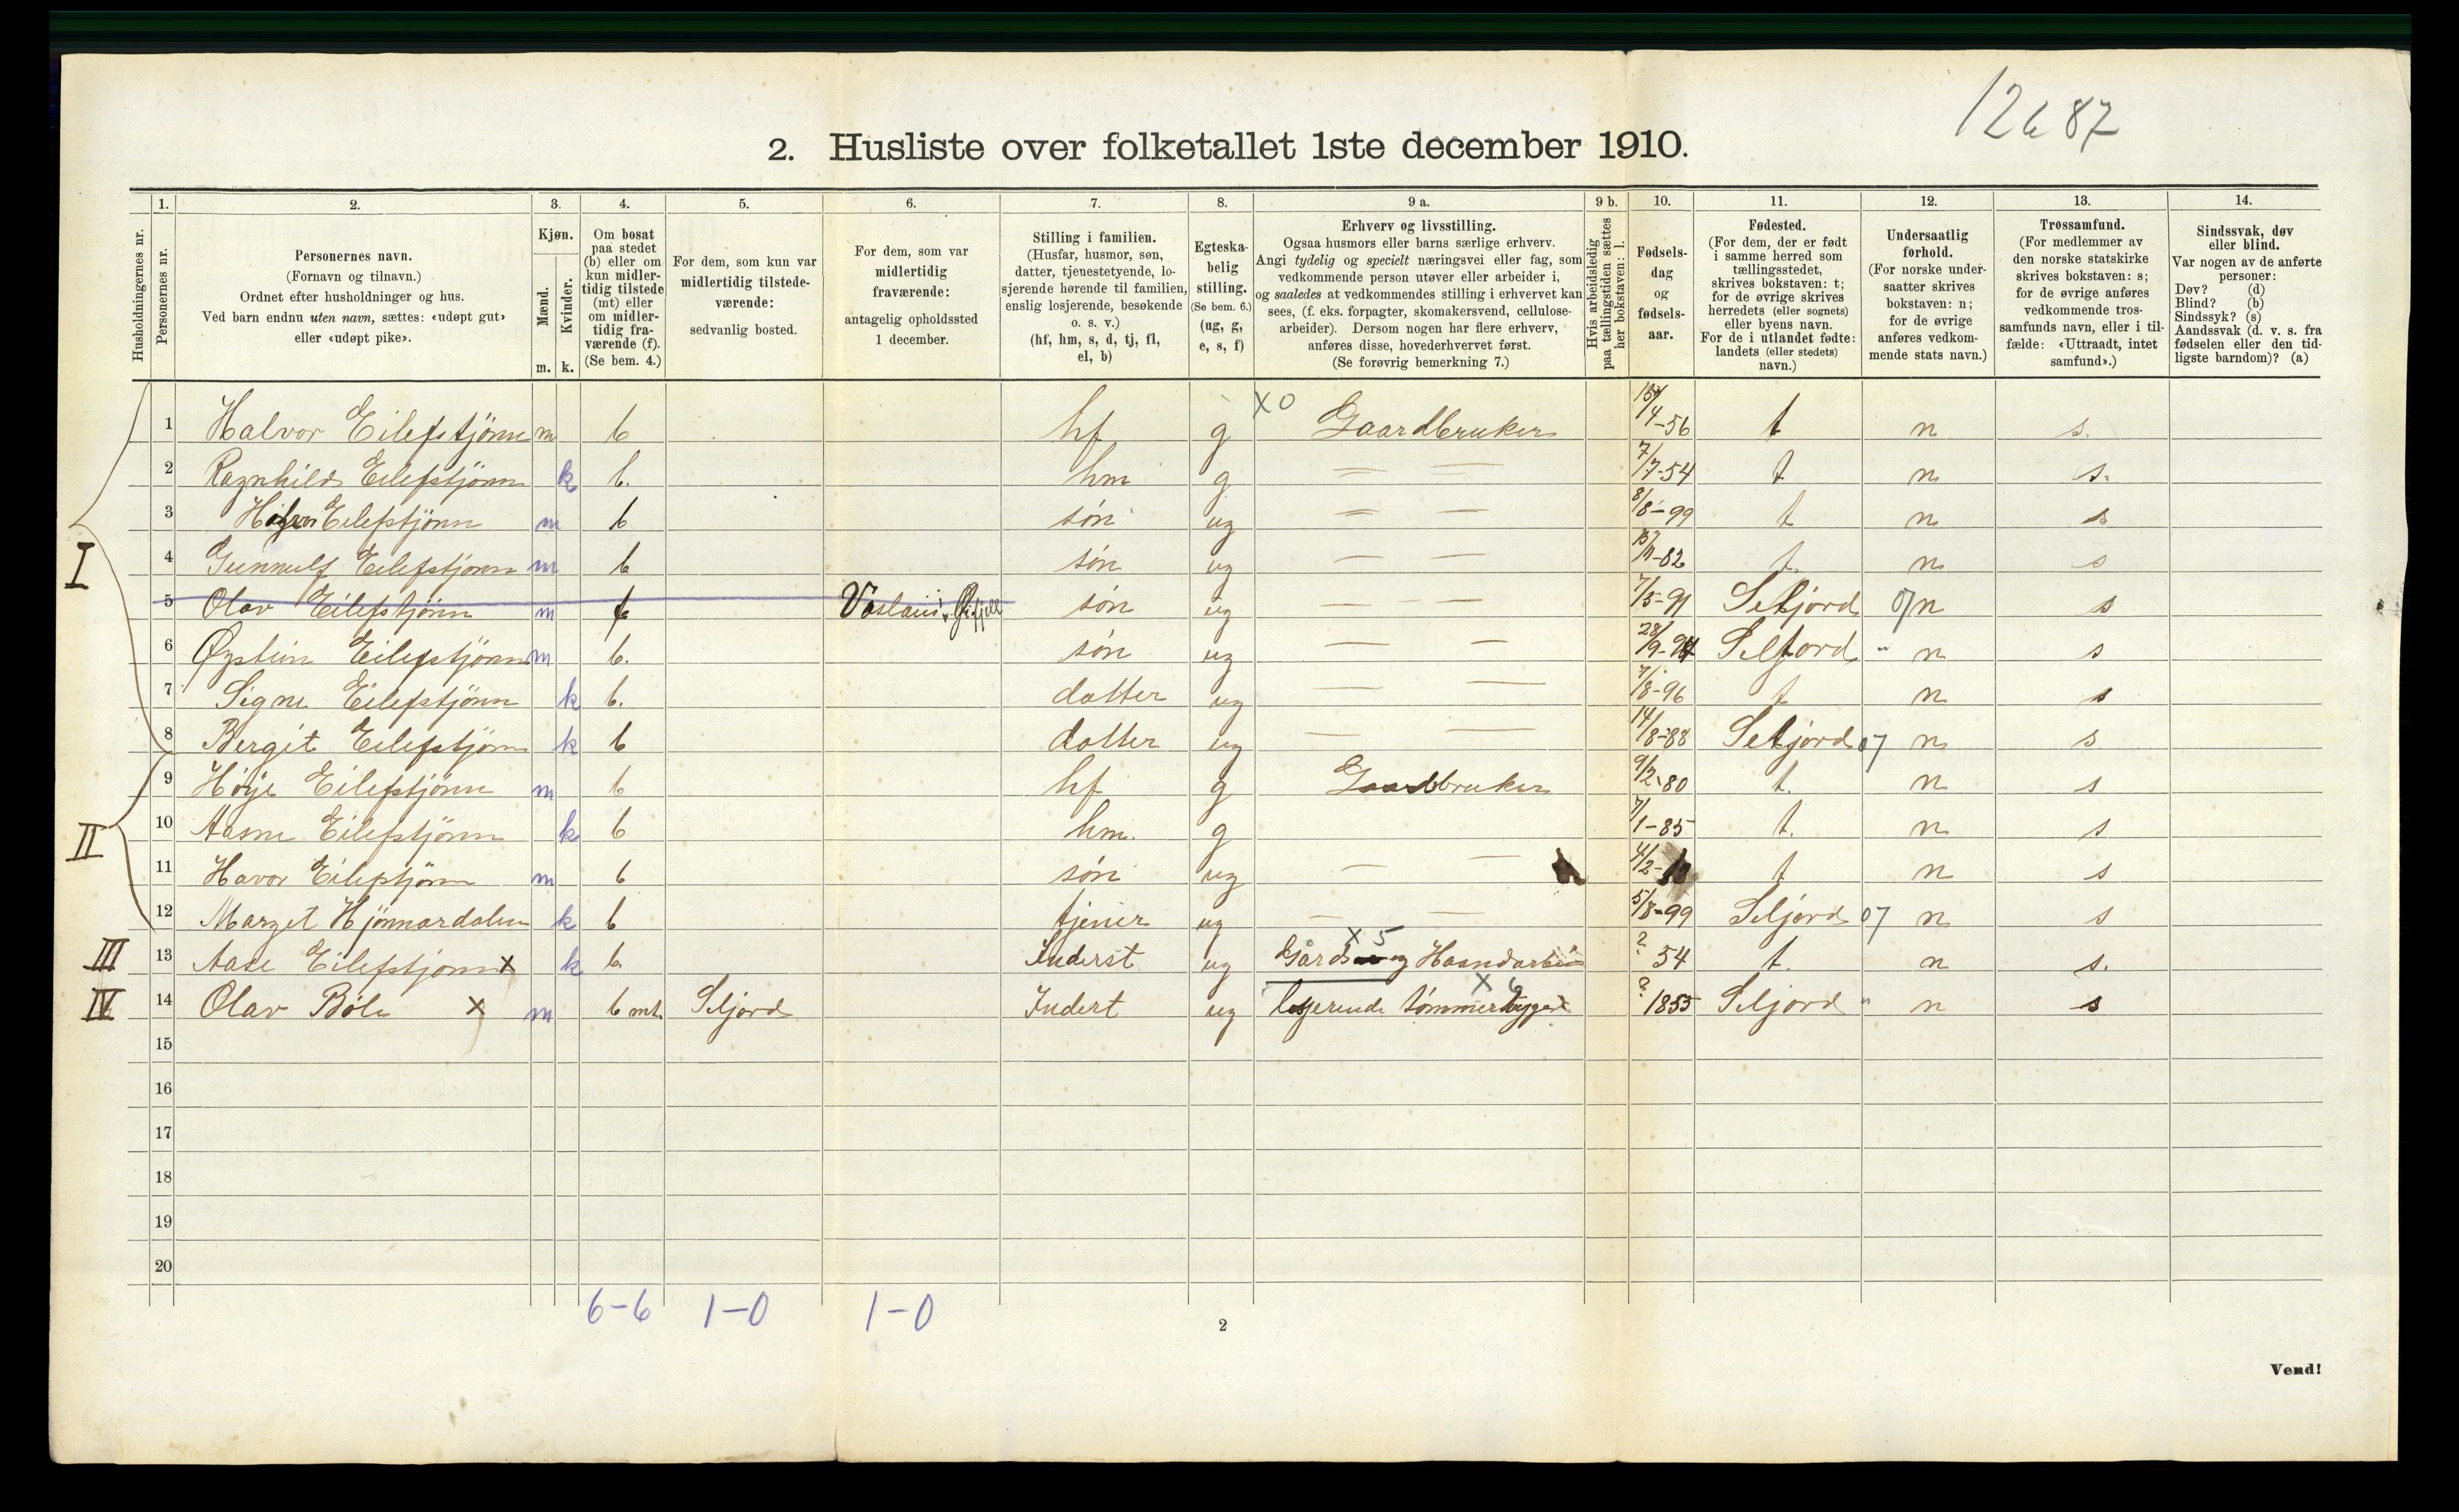 12687
2. Husliste over folketallet 1ste december 1910.
Husholdningernes nr.
1. Personernes nr.
2. Personernes navn. (Fornavn og tilnavn.) Ordnet efter husholdninger og hus. Ved barn endnu uten navn, sættes: «udøpt gut» eller «udøpt pike».
3. Kjøn. Mænd. m. Kvinder. k.
4. Om bosat paa stedet (b) eller om kun midlertidig tilstede (mt) eller om midlertidig fraværende (f). (Se bem. 4.)
5. For dem, som kun var midlertidig tilstedeværende: sedvanlig bosted.
6. For dem, som var midlertidig fraværende: antagelig opholdssted 1 december.
7. Stilling i familien. (Husfar, husmor, søn, datter, tjenestetyende, losjerende hørende til familien, enslig losjerende, besøkende o. s. v.) (hf, hm, s, d, tj, fl, el, b)
8. Egteskabelig stilling. (Se bem. 6.) (ug, g, e, s, f)
9 a. Erhverv og livsstilling. Ogsaa husmors eller barns særlige erhverv. Angi tydelig og specielt næringsvei eller fag, som vedkommende person utøver eller arbeider i, og saaledes at vedkommendes stilling i erhvervet kan sees, (f. eks. forpagter, skomakersvend, cellulosearbeider). Dersom nogen har flere erhverv, anføres disse, hovederhvervet først. (Se forøvrig bemerkning 7.)
9 b. Hvis arbeidsledig paa tællingstiden sættes her bokstaven: l.
10. Fødselsdag og fødselsaar.
11. Fødested. (For dem, der er født i samme herred som tællingsstedet, skrives bokstaven: t; for de øvrige skrives herredets (eller sognets) eller byens navn. For de i utlandet fødte: landets (eller stedets) navn.)
12. Undersaatlig forhold. (For norske undersaatter skrives bokstaven: n; for de øvrige anføres vedkommende stats navn.)
13. Trossamfund. (For medlemmer av den norske statskirke skrives bokstaven: s; for de øvrige anføres vedkommende trossamfunds navn, eller i tilfælde: «Uttraadt, intet samfund».)
14. Sindssvak, døv eller blind. Var nogen av de anførte personer: Døv? (d) Blind? (b) Sindssyk? (s) Aandssvak (d. v. s. fra fødselen eller den tidligste barndom)? (a)
I
1 Halvor Eilefstjönn m b hf g X0 Gaardbruker 13/4-56 t n s.
2 Ragnhild Eilefstjönn k b. hm g — — 7/7-54 t n s.
3 Eilefstjönn m b søn ug — — 8/8-99 t n s
4 Gunnulf Eilefstjönn m b søn ug — — -82 t. n s
5 Olav Eilefstjönn m f søn ug — — 7/5-91 Seljord 07 n s
6 Øystein Eilefstjönn m b. søn ug — — 28/9-94 Seljord " n s
7 Signe Eilefstjönn k b. datter ug — — 7/8-96 t n s
8 Bergit Eilefstjönn k b datter ug — — 14/8-88 Seljord 07 n s
II
9 Høje Eilefstjönn m b hf g Gaardbruker 9/2-80 t. n s
10 Aasne Eilefstjönn k b hm. g 7/1-85 t. n s
11 Havor Eilefstjönn m b søn ug — — 4/2- t n s
12 Marget Hjönnardalen k b tjener ug — — 5/8-99 Seljord 07 n s
III
13 Aase Eilefstjönn X k b Inderst ug X 5 Gårds og Haandarbei ? 54 t. n s.
IV
14 Olav Böle X m b mt. Seljord Indert ug X 6 losjerende tømmerhugger ? 1855 Seljord " n s
15
16
17
18
19
20
6-6 1-0 1-0
2
Vend!